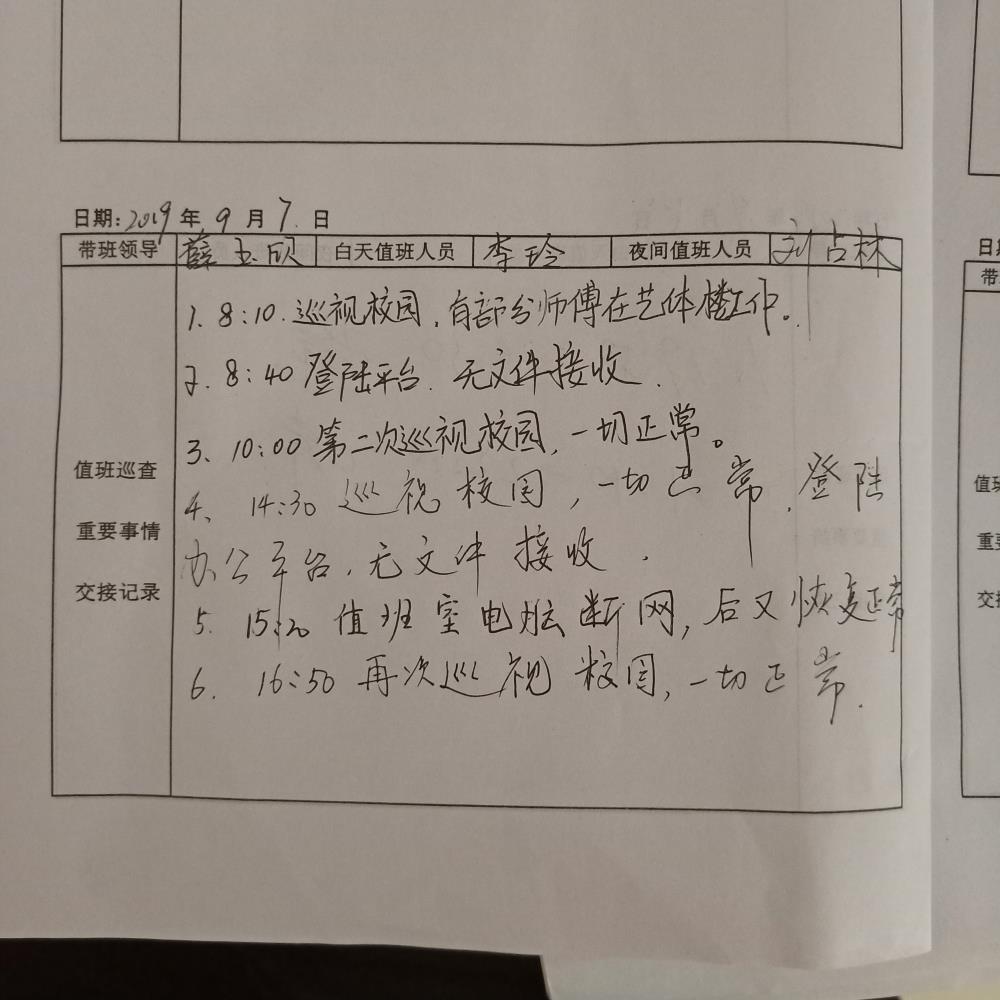 日期:2019年9月7.日
带班领导 薛玉欣 白天值班人员 李玲 夜间值班人员 刘占林
1. 8:10.巡视校园,有部分师傅在艺体楼工作。
2. 8:40 登陆平台.无文件接收.
3、10:00 第二次巡视校园,一切正常。
4、14:30 巡视校园,一切正常.登陆
办公平台.无文件接收.
5. 15:20 值班室电脑断网,后又恢复正常
6. 16:50 再次巡视校园,一切正常.
值班巡查
重要事情
交接记录
日期
带
值班
重要
交接